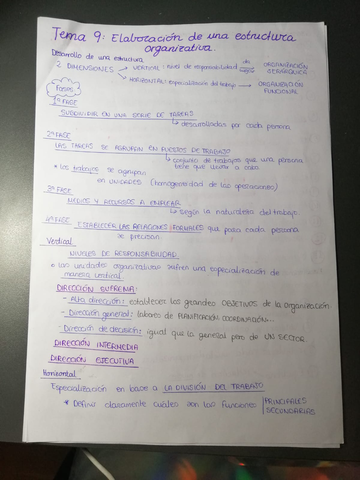 Tema 9: Elaboración de una estructura
organizativa.
Desarrollo de una estructura
2 DIMENSIONES → VERTICAL: nivel de responsabilidad → de ORGANIZACIÓN JERÁRQUICA
→ HORIZONTAL: especialización del trabajo → ORGANIZACIÓN FUNCIONAL
FASES
1ª FASE
SUBDIVIDIR EN UNA SERIE DE TAREAS
↳ desarrolladas por cada persona
2ª FASE
LAS TAREAS SE AGRUPAN EN PUESTOS DE TRABAJO
↳ conjunto de trabajos que una persona
tiene que llevar a cabo
• los trabajos se agrupan
en UNIDADES (homogeneidad de las operaciones)
3ª FASE
MEDIOS Y RECURSOS A EMPLEAR
↳ según la naturaleza del trabajo
4ª FASE ESTABLECER LAS RELACIONES FORMALES que para cada persona
se precisan
Vertical
NIVELES DE RESPONSABILIDAD
• las unidades organizativas sufren una especialización de
manera vertical
DIRECCIÓN SUPREMA:
- Alta dirección: establecer los grandes OBJETIVOS de la organización
- Dirección general: labores de PLANIFICACIÓN COORDINACIÓN...
- Dirección de decisión: igual que la general pero de UN SECTOR
DIRECCIÓN INTERMEDIA
DIRECCIÓN EJECUTIVA
Horizontal
Especialización en base a LA DIVISIÓN DEL TRABAJO
* Definir claramente cuáles son las funciones PRINCIPALES
SECUNDARIAS